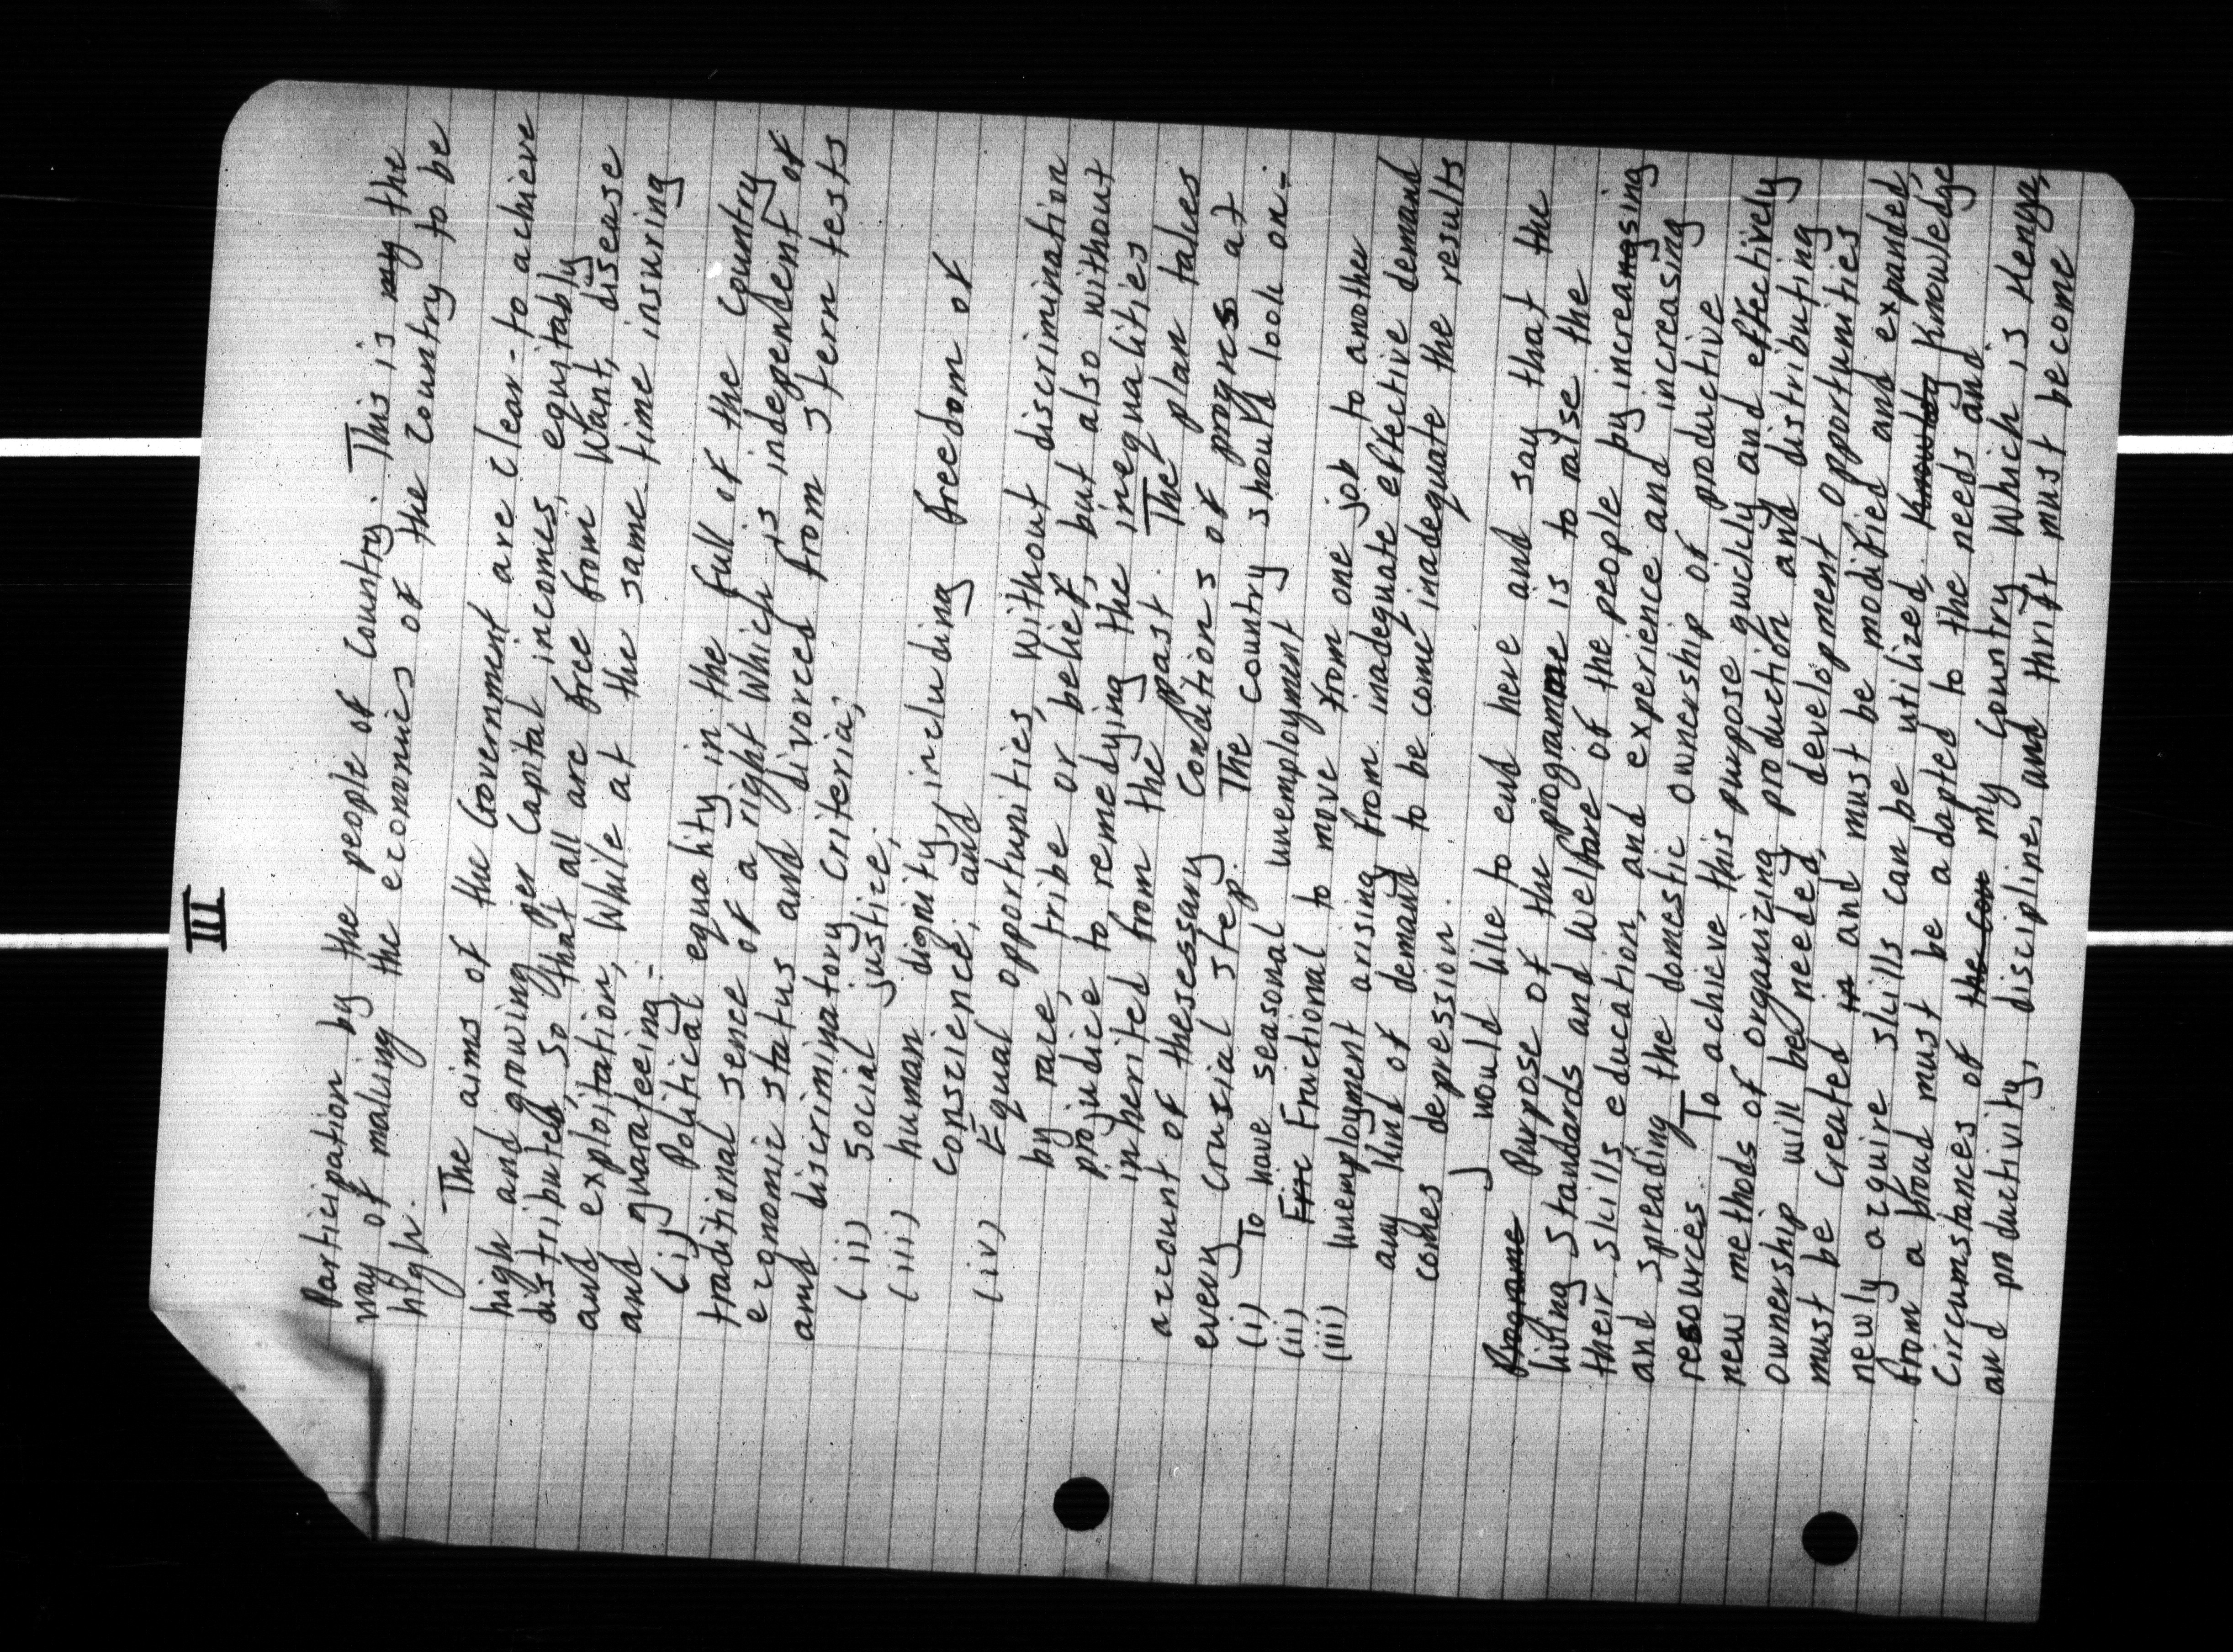 III
Participation by the people of Country. This is my the
way of making the economics of the country to be
high.
The aims of the Government are clear - to achieve
high and growing per Capital incomes, equitably
distributed, so that all are free from Want, disease
and exploitation, While at the same time insuring
and guarateeing:-
(i) Political equality in the full of the country
traditional sence of a right Which is independent of
economic status and divorced from stern tests
and discriminatory criteria;
(ii) Social justice;
(iii) human dignity, including freedom of
conscience; and
(iv) Equal opportunities, without discrimination
by race, tribe or belief, but also without
projudice to remedying the inequalities
inherited from the past. The plan takes
account of thesessany Conditions of progress at
every crusial step. The country should look on:-
(i) To have seasonal unemployment
(ii) Fric Fructional to move from one job to another
(iii) Unemployment arising from inadequate effective demand
any kind of demand to be come inadequate the results
comes depression.
I would like to end here and say that the
Programe Purpose of the programme is to raise the
living standards and welfare of the people by increasing
their skills education, and experience and increasing
and spreading the domestic ownership of productive
resources. To achieve this purpose quickly and effectively
new methods of organizing production and distributing
ownership will be needed, development opportunities
must be created in and must be modified and expanded,
newly acquire skills can be utilized, Knowldg Knowledge
from a broad must be a dapted to the needs and
Circumstances of the Con my Country Which is Kenya,
and productivity, discipline, and thrift must become